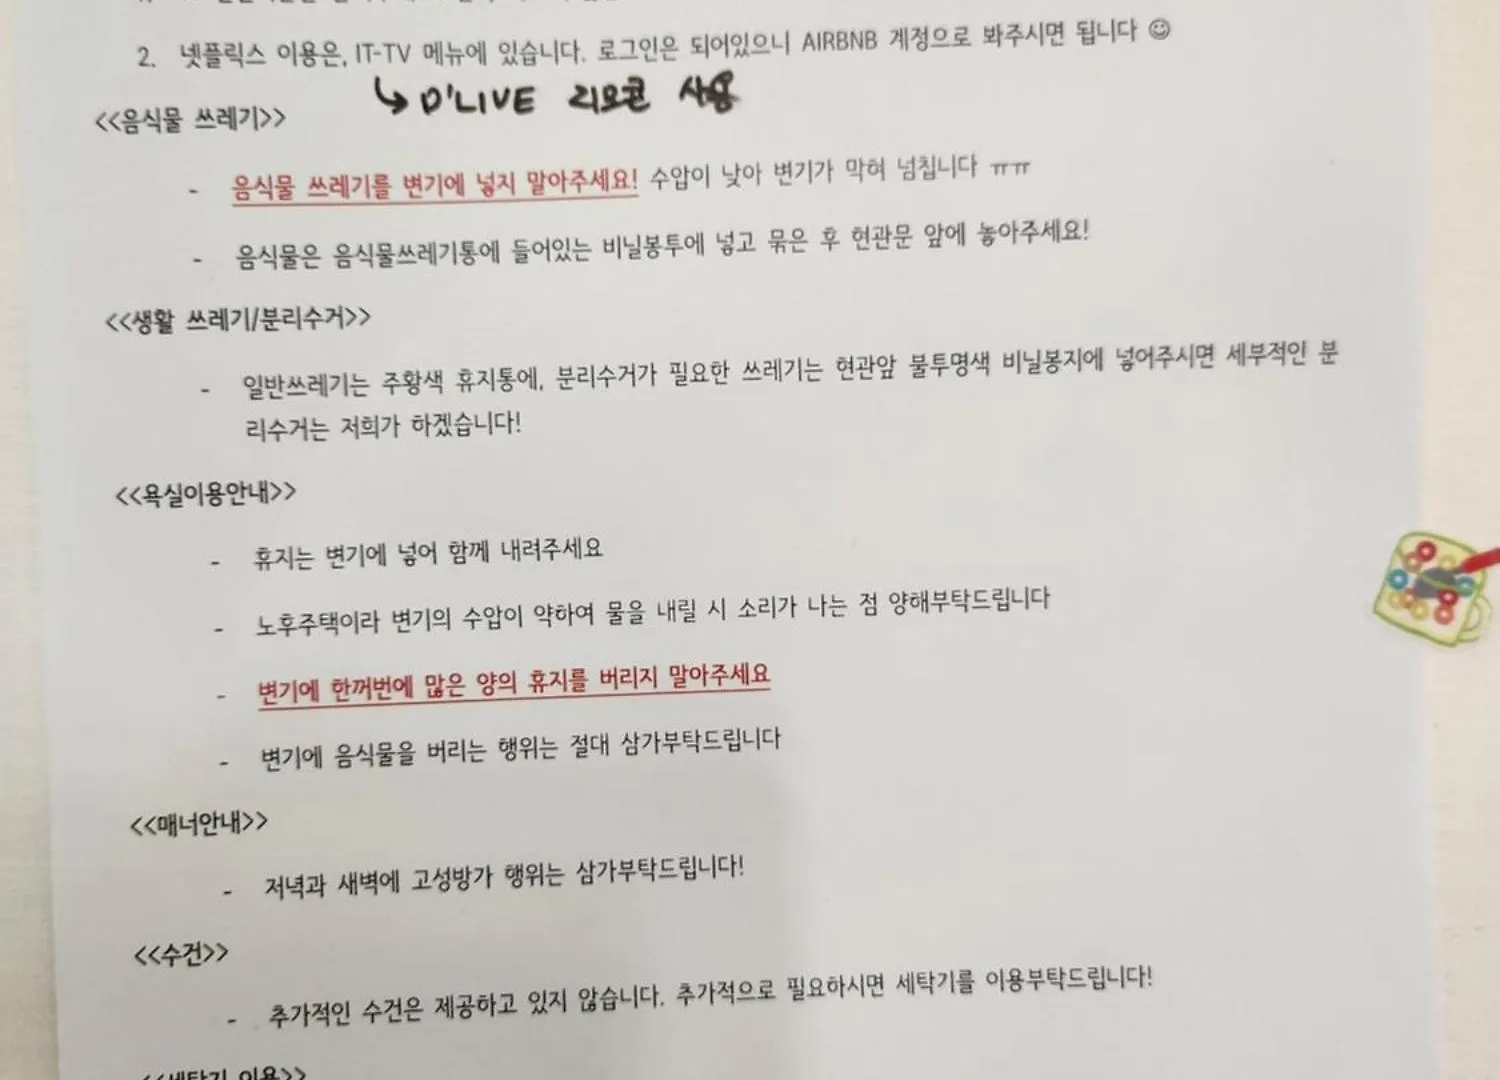 2. 넷플릭스 이용은, IT-TV 메뉴에 있습니다. 로그인은 되어있으니 AIRBNB 계정으로 봐주시면 됩니다 ☺
↳ D'LIVE 리모콘 사용
<<음식물 쓰레기>>
- 음식물 쓰레기를 변기에 넣지 말아주세요! 수압이 낮아 변기가 막혀 넘칩니다 ㅠㅠ
- 음식물은 음식물쓰레기통에 들어있는 비닐봉투에 넣고 묶은 후 현관문 앞에 놓아주세요!
<<생활 쓰레기/분리수거>>
- 일반쓰레기는 주황색 휴지통에, 분리수거가 필요한 쓰레기는 현관앞 불투명색 비닐봉지에 넣어주시면 세부적인 분
리수거는 저희가 하겠습니다!
<<욕실이용안내>>
- 휴지는 변기에 넣어 함께 내려주세요
- 노후주택이라 변기의 수압이 약하여 물을 내릴 시 소리가 나는 점 양해부탁드립니다
- 변기에 한꺼번에 많은 양의 휴지를 버리지 말아주세요
- 변기에 음식물을 버리는 행위는 절대 삼가부탁드립니다
<<매너안내>>
- 저녁과 새벽에 고성방가 행위는 삼가부탁드립니다!
<<수건>>
- 추가적인 수건은 제공하고 있지 않습니다. 추가적으로 필요하시면 세탁기를 이용부탁드립니다!
<<세탁기 이용>>